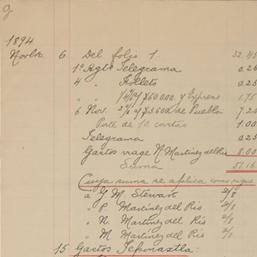 1894
Novbre 6 Del folio 1 32.45
1º Agto Telegrama 0.2
4 " Folleto 0.2
" " y Expreso 1.75
6 Nov. de Puebla 7.20
Porte de 10 cartas 1.00
Telegrama 0.25
Gastos viage N. Martinez del Rio 8.00
Suma 51.16
Cuya suma se aplica como sigue
a G. M. Stewart
" P. Martinez del Rio
" N. Martinez del Rio
" M. Martinez del Rio
15 Gastos